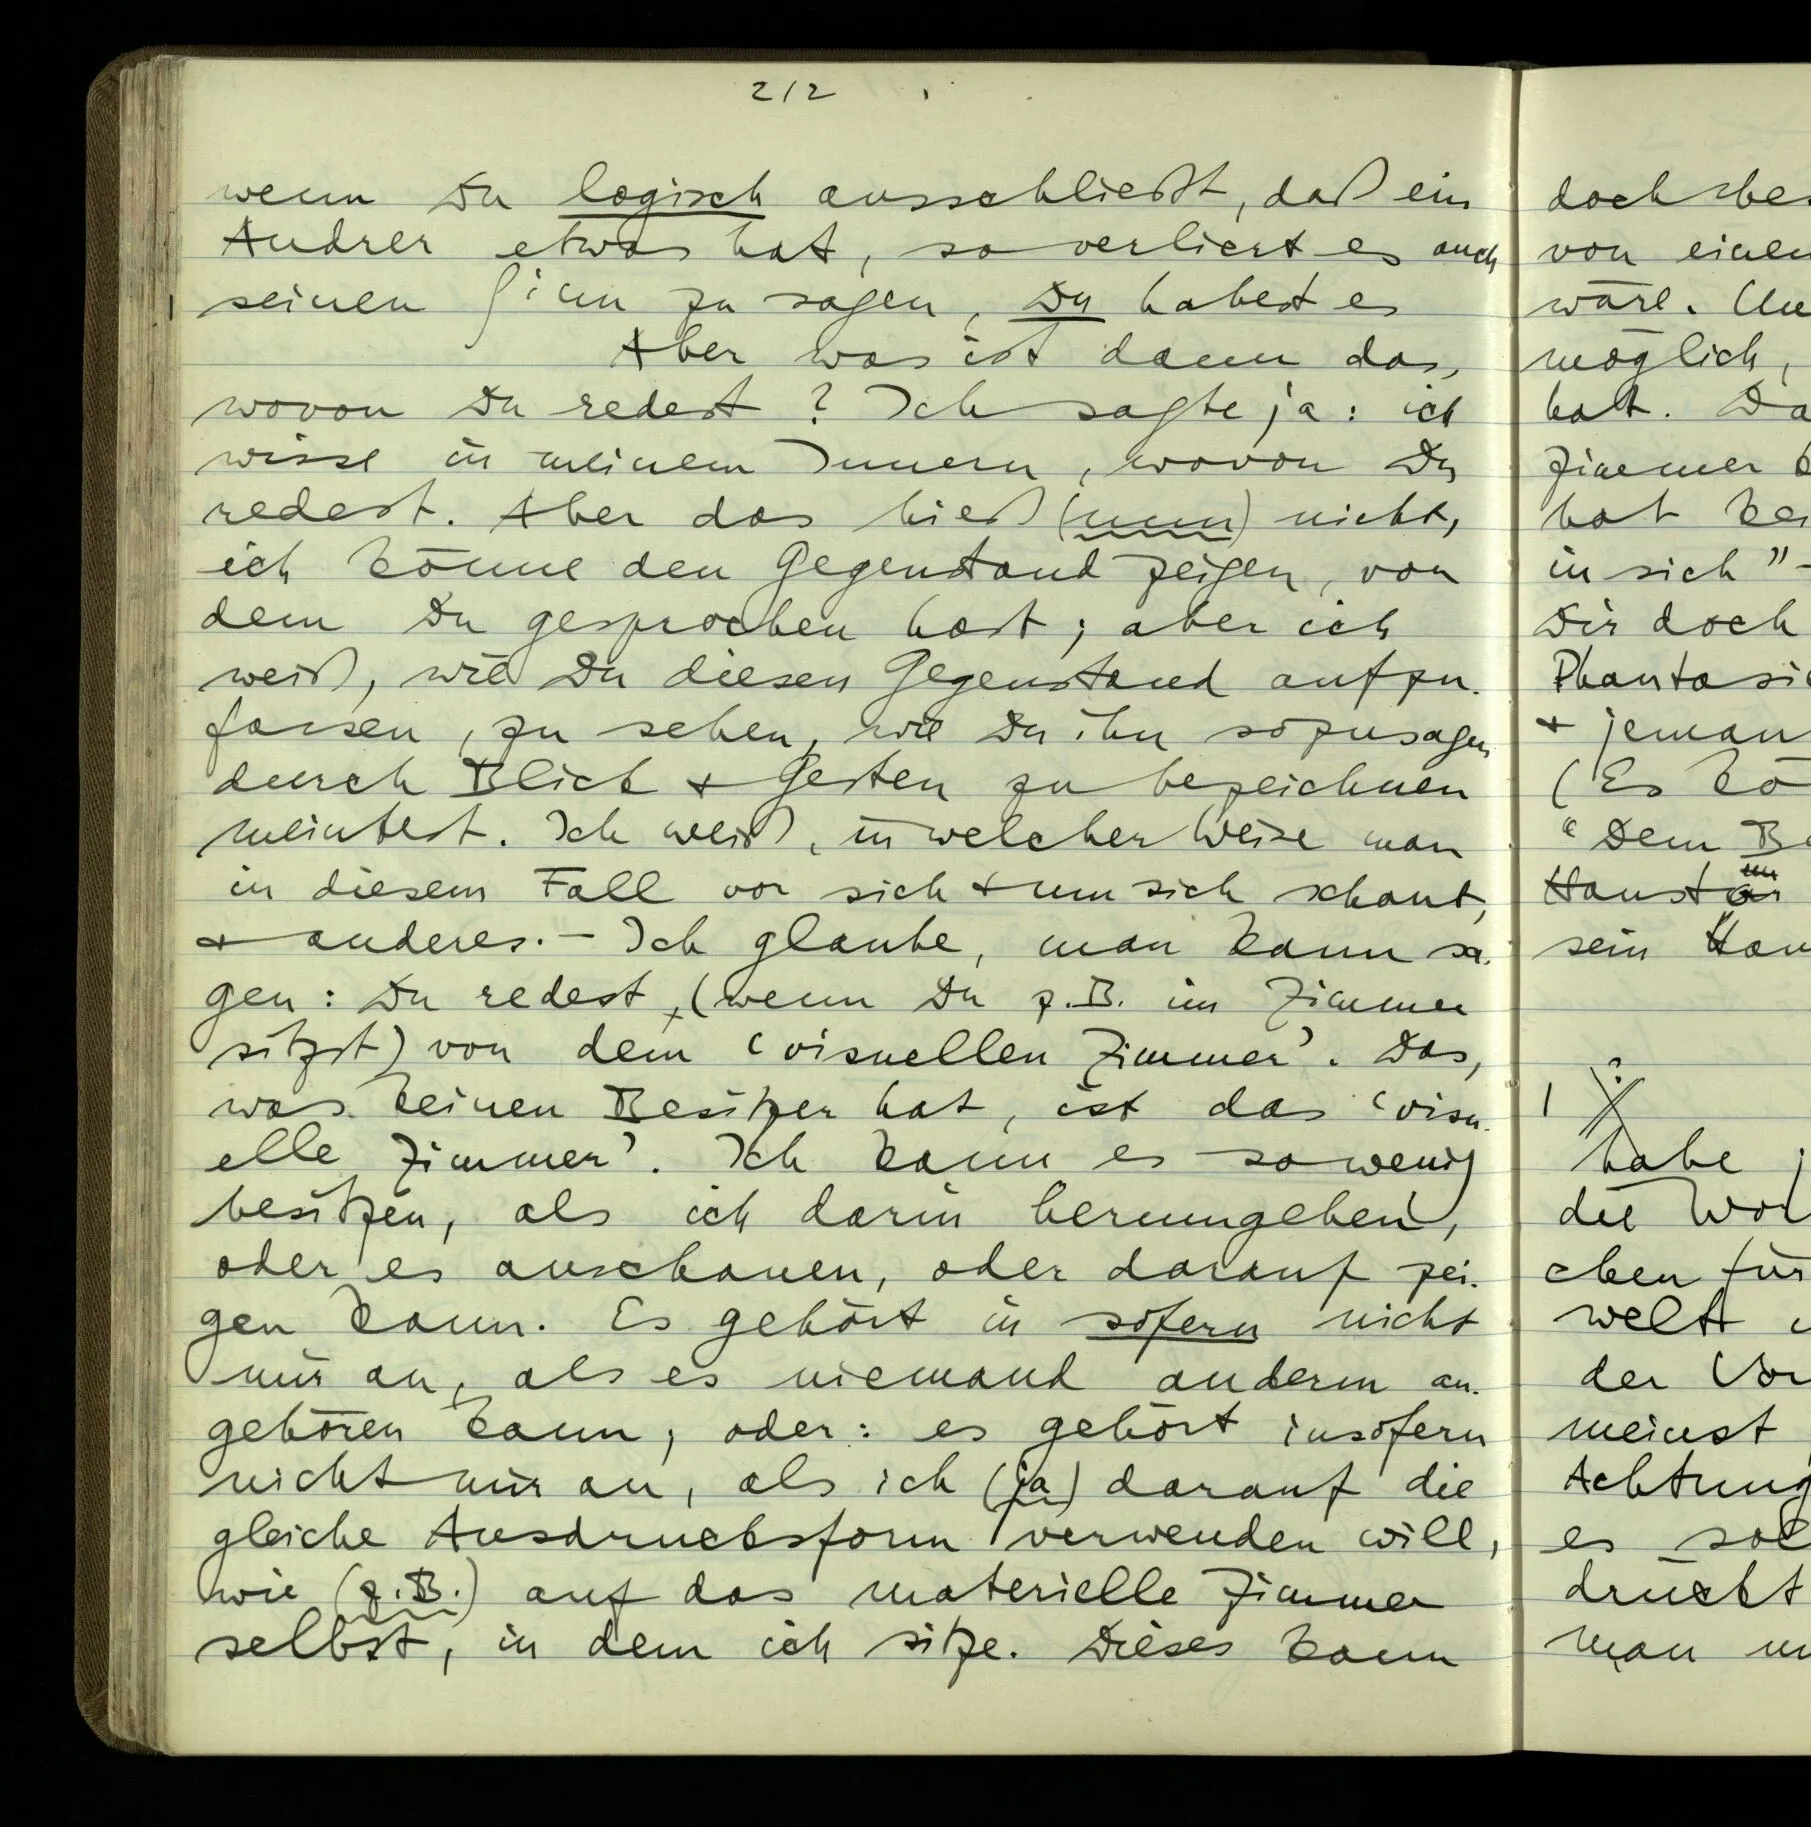 212
wenn Du logisch ausschließt, daß ein
Andrer etwas hat, so verliert es auch
seinen Sinn zu sagen, Du habest es
Aber was ist dann das,
wovon Du redest? Ich sagte ja: ich
wisse in meinem Innern, wovon Du
redest. Aber das hieß (nun) nicht,
ich könne den Gegenstand zeigen, von
dem Du gesprochen hast; aber ich
weiß, wie Du diesen Gegenstand aufzu-
fassen, zu sehen, wie Du ihn sozusagen
durch Blick + Gesten zu bezeichnen
meintest. Ich weiß, in welcher Weise man
in diesem Fall vor sich + um sich schaut,
+ anderes. – Ich glaube, man kann sa-
gen: Du redest, (wenn Du z.B. im Zimmer
sitzst) von dem ‘visuellen Zimmer’. Das,
was keinen Besitzer hat, ist das ‘visu-
elle Zimmer’. Ich kann es sowenig
besitzen, als ich darin herumgehen,
oder es anschauen, oder darauf zei-
gen kann. Es gehört in sofern nicht
mir an, als es niemand anderm an-
gehören kann; oder: es gehört insofern
nicht mir an, als ich (ja) darauf die
gleiche Ausdrucksform verwenden will,
wie (z.B.) auf das materielle Zimmer
selbst, in dem ich sitze. Dieses kann
doch
von einen
wäre.
möglich,
hat.
Zimmer
hat
in sich” –
Dir doch
+
(Es
“Dem
sein
1
habe
die
chen für
welt
der
meinst
Achtung
es
drückt
man